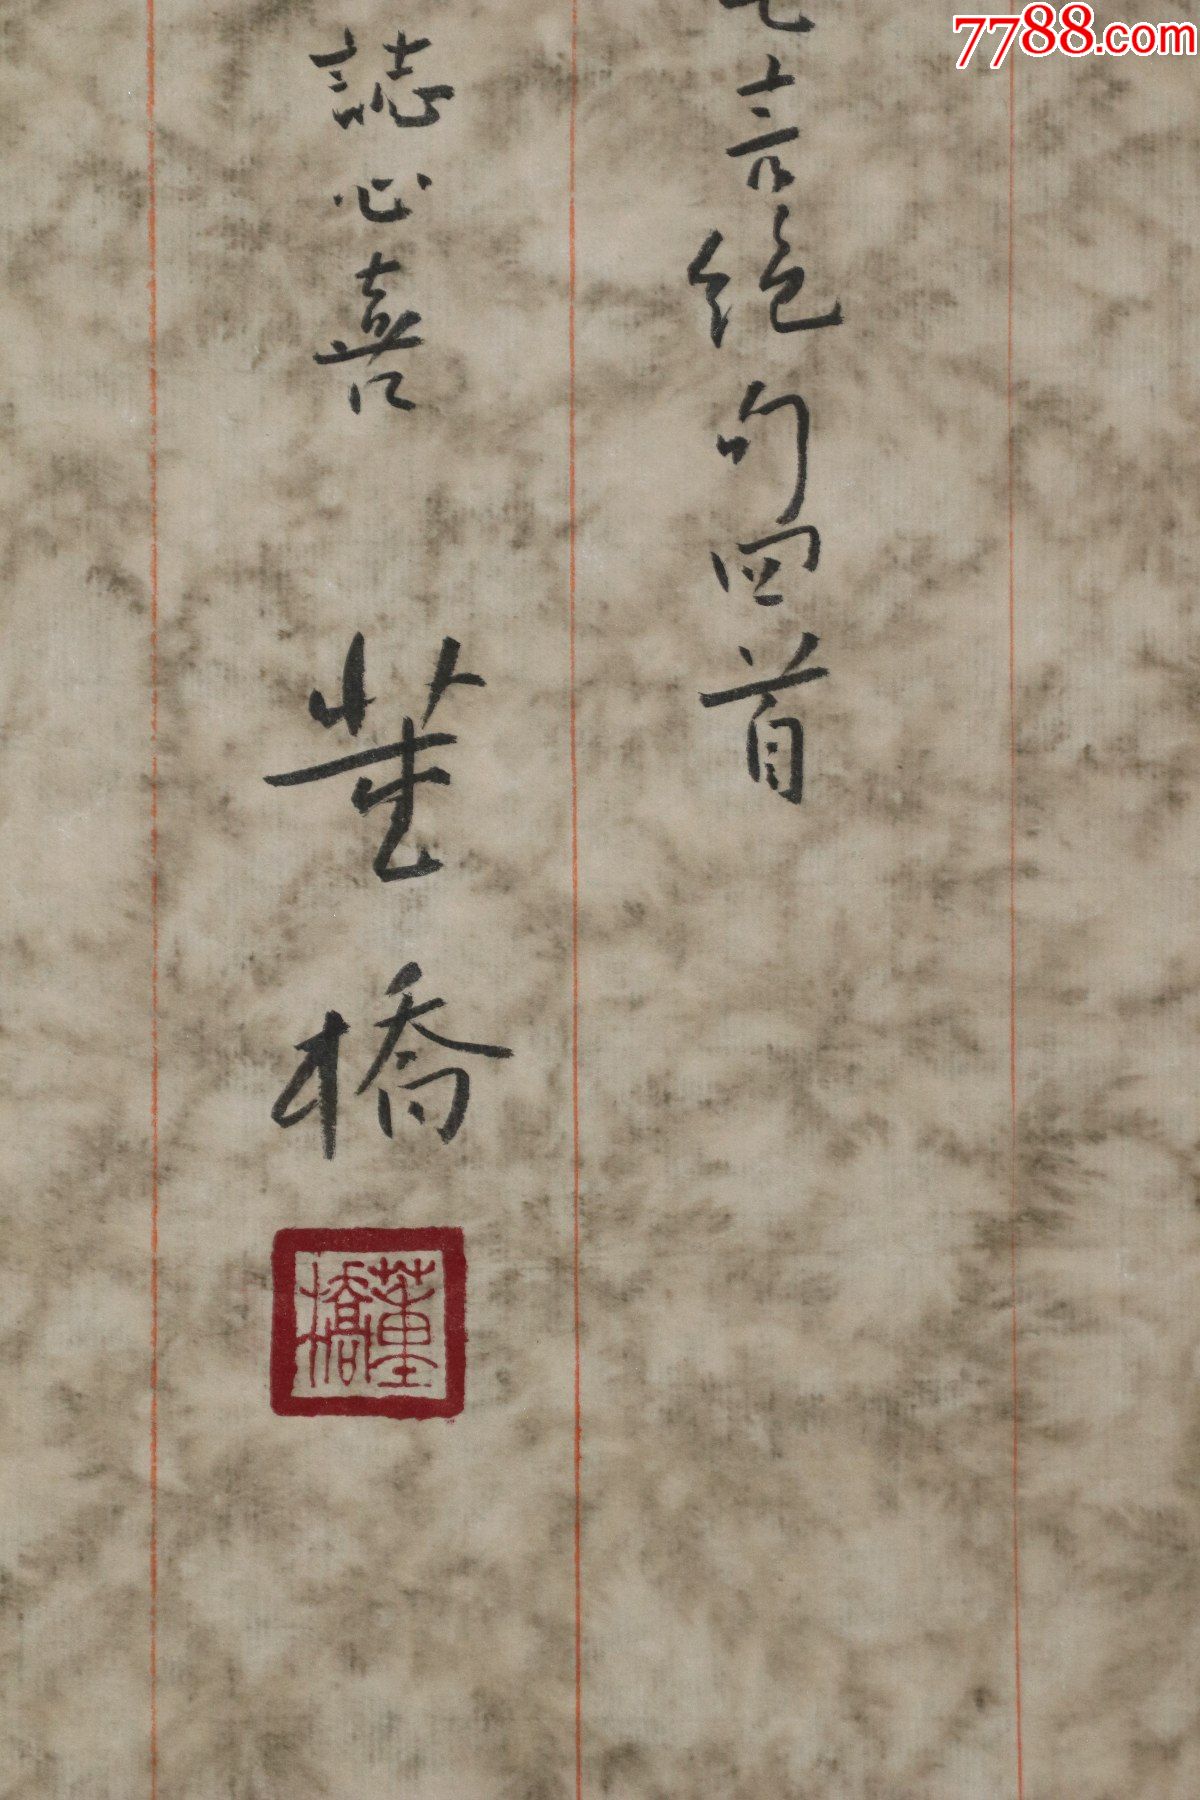 7788.com
七言絕句四首
誌心喜
董橋
董橋